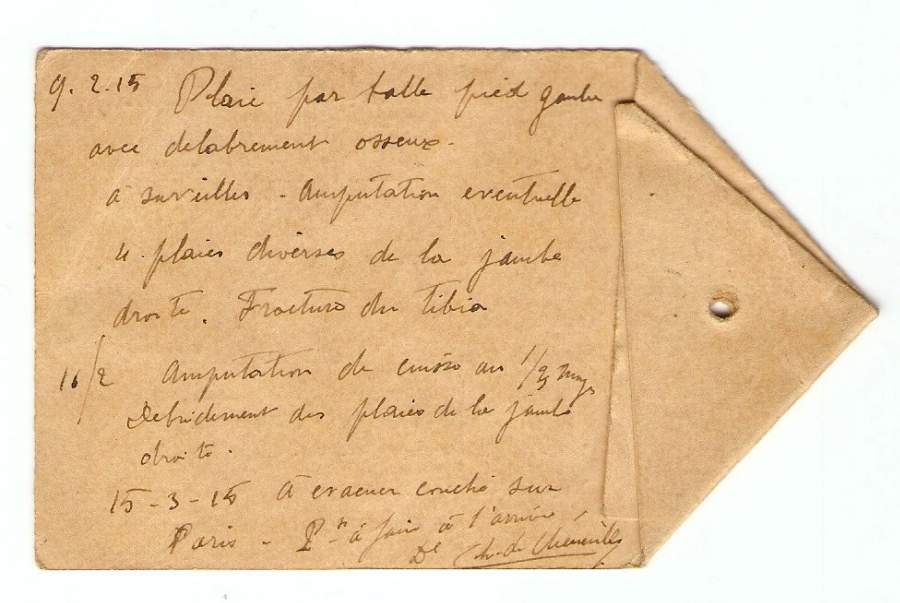 9.2.15 Plaie par balle pied gauche
avec delabrement osseux -
à surveiller - Amputation eventuelle
4 plaies diverses de la jambe
droite. Fracture du tibia
16/2 Amputation de cuisse au 1/3 moy
Debridement des plaies de la jambe
droite.
15-3-15 à evacuer couché sur
Paris - Pt à faire à l'arrivée
Dr Ch. de